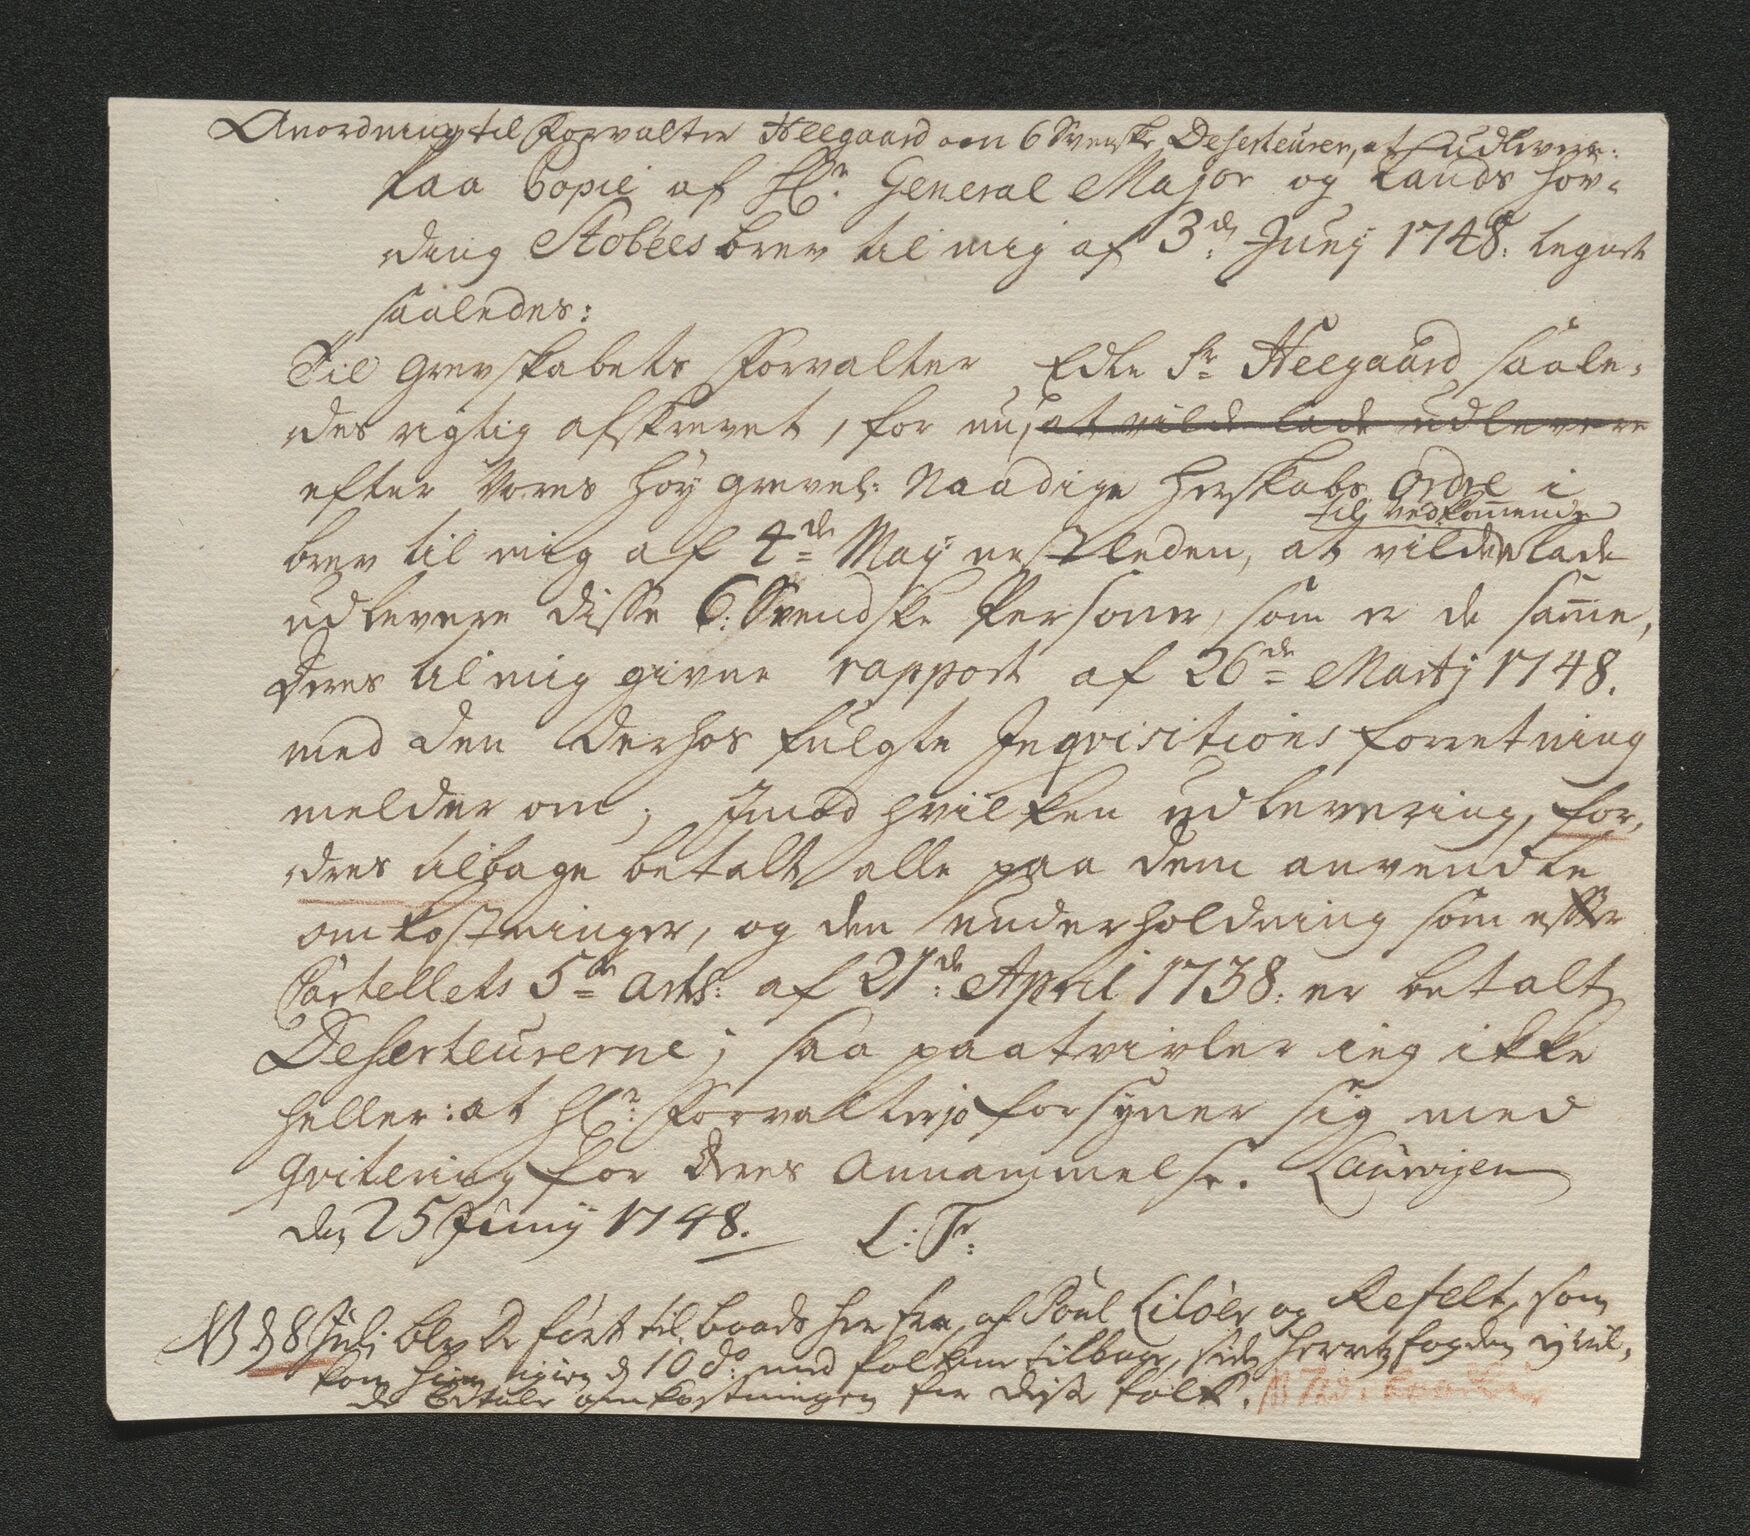 Anordning til Forvalter Heegaard om 6 Svenske Deserteurer, at udlevere:
paa Copie af Hr. General Major og Lands Høv-
ding Stobées brev til mig af 3de Junij 1748. tegnet
saaledes:
Til Grevskabets Forvalter Edle Sr. Heegaard saale-
des rigtig afskrevet, for nu, at vilde lade udlevere
efter Vores Høy Grevel: Naadige Herskabs Ordre i
til vedkommende
brev til mig af 4de Maij nestleden, at vilde lade
udlevere disse 6. Svendske Personer, som er de samme,
Deres til mig givne rapport af 26de Martij 1748.
med den derhos fulgte Inqvisitions forretning
melder om; Imod hvilken udlevering, for-
dres tilbage betalt alle paa dem anvendte
omkostninger, og den underholdning som efter
Cartellets 5te art: af 21de April 1738. er betalt
Deserteurerne; saa paatvivler ieg ikke
heller: at Hr. Forvalter jo forsyner sig med
Qvitering for deres Annammelse. Laurvigen
den 25 Junij 1748. L: T:
NB d 8 Juli blev de ført til baads her fra, af Poul Liløer og Refelt, som
kom hiem igien d 10 do. med folkene tilbage, siden Herretzfogden ej vil-
de betale omkostningen for disse folk. NB